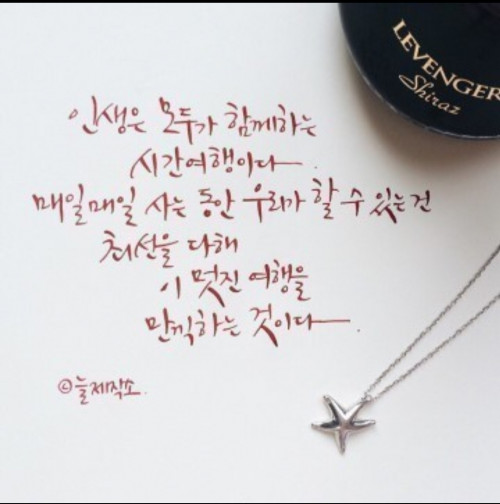 LEVENGER
Shiraz
인생은 모두가 함께하는
시간여행이다.
매일매일 사는 동안 우리가 할 수 있는건
최선을 다해
이 멋진 여행을
만끽하는 것이다.
©늘제작소.